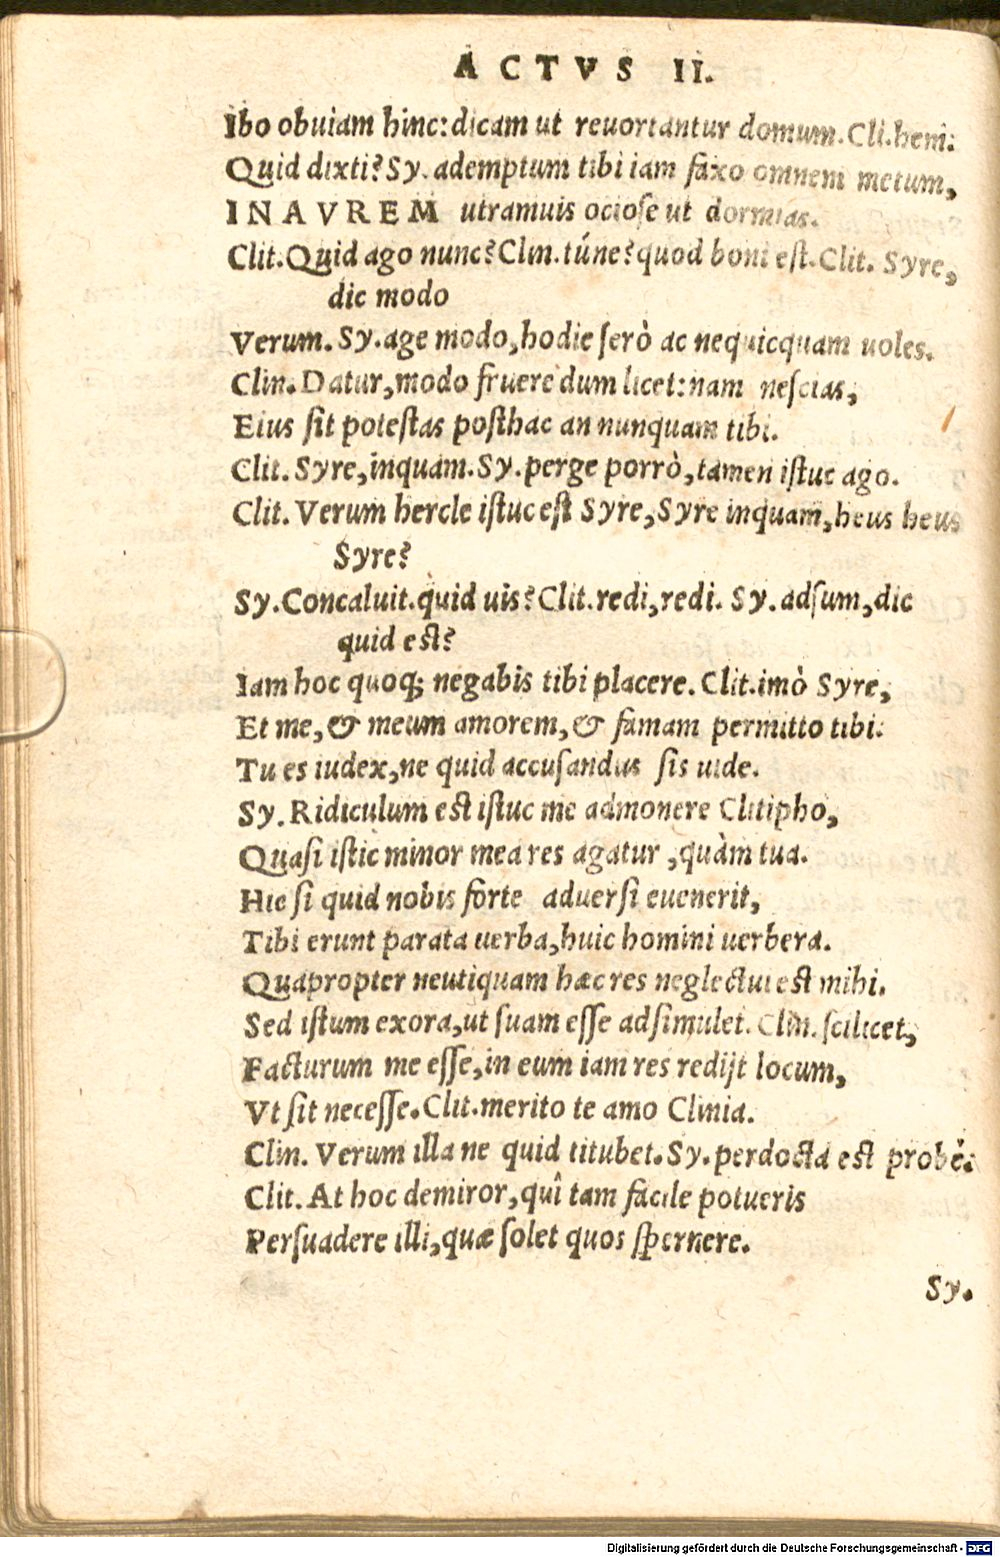 ACTVS II.
Ibo obuiam hinc: dicam ut reuortantur domum. Cli. hem:
Quid dixti? Sy. ademptum tibi iam faxo omnem metum,
IN AVREM utramuis ociose ut dormias.
Clit. Quid ago nunc? Clin. túne? quod boni est. Clit. Syre,
dic modo
Verum. Sy. age modo, hodie serò ac nequicquam uoles.
Clin. Datur, modo fruere dum licet: nam nescias,
Eius sit potestas posthac an nunquam tibi.
Clit. Syre, inquam. Sy. perge porrò, tamen istuc ago.
Clit. Verum hercle istuc est Syre, Syre inquam, heus heus
Syre?
Sy. Concaluit. quid uis? Clit. redi, redi. Sy. adsum, dic
quid est?
Iam hoc quoq; negabis tibi placere. Clit. imò Syre,
Et me, & meum amorem, & famam permitto tibi:
Tu es iudex, ne quid accusandus sis uide.
Sy. Ridiculum est istuc me admonere Clitipho,
Quasi istic minor mea res agatur, quàm tua.
Hic si quid nobis forte aduersi euenerit,
Tibi erunt parata uerba, huic homini uerbera.
Quapropter neutiquam hæc res neglectui est mihi.
Sed istum exora, ut suam esse adsimulet. Clin. scilicet,
Facturum me esse, in eum iam res redijt locum,
Vt sit necesse. Clit. merito te amo Clinia.
Clin. Verum illa ne quid titubet. Sy. perdocta est probè.
Clit. At hoc demiror, quî tam facile potueris
Persuadere illi, quæ solet quos spernere.
Sy.
Digitalisierung gefördert durch die Deutsche Forschungsgemeinschaft - DFG